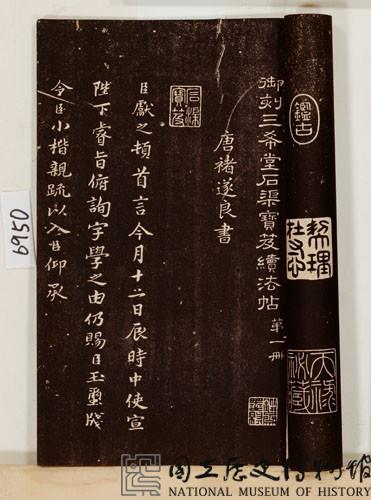 鑑古
御刻三希堂石渠寶笈續法帖 第一冊
唐褚遂良書
石渠
寶笈
臣獻之頓首言今月十二日辰時中使宣
陛下睿旨俯詢字學之由仍賜臣玉璽牋
令臣小楷親疏以入臣仰承
6950
國立歷史博物館
NATIONAL MUSEUM OF HISTORY